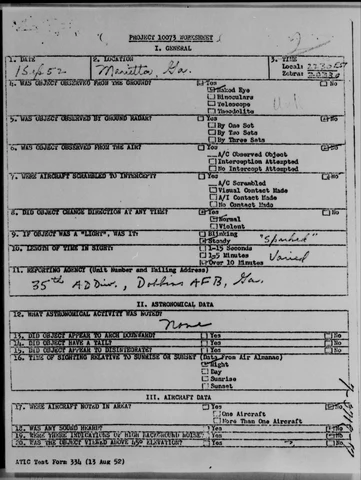 PROJECT 10073 WORKSHEET
I. GENERAL
1. DATE 2. LOCATION 3. TIME
1 Sep 52 Marietta, Ga. Local: 2230 EST
Zebra:
4. WAS OBJECT OBSERVED FROM THE GROUND? Yes No
Naked Eye
Binoculars
Telescope
Theodolite
5. WAS OBJECT OBSERVED BY GROUND RADAR? Yes No
By One Set
By Two Sets
By Three Sets
6. WAS OBJECT OBSERVED FROM THE AIR? Yes No
A/C Observed Object
Interception Attempted
No Intercept Attempted
7. WERE AIRCRAFT SCRAMBLED TO INTERCEPT? Yes No
A/C Scrambled
Visual Contact Made
A/I Contact Made
No Contact Made
8. DID OBJECT CHANGE DIRECTION AT ANY TIME? Yes No
Normal
Violent
9. IF OBJECT WAS A "LIGHT", WAS IT: Blinking
Steady
10. LENGTH OF TIME IN SIGHT: 1-15 Seconds
1-5 Minutes Varied
Over 10 Minutes
11. REPORTING AGENCY (Unit Number and Mailing Address)
35th AD Div., Dobbins AFB, Ga.
II. ASTRONOMICAL DATA
12. WHAT ASTRONOMICAL ACTIVITY WAS NOTED?
None
13. DID OBJECT APPEAR TO ARCH DOWNWARD? Yes No
14. DID OBJECT HAVE A TAIL? Yes No
15. DID OBJECT APPEAR TO DISINTEGRATE? Yes No
16. TIME OF SIGHTING RELATIVE TO SUNRISE OR SUNSET (Data From Air Almanac)
Night
Day
Sunrise
Sunset
III. AIRCRAFT DATA
17. WERE AIRCRAFT NOTED IN AREA? Yes No
One Aircraft
More Than One Aircraft
18. WAS ANY SOUND HEARD? Yes No
19. WERE THERE INDICATIONS OF HIGH BACKGROUND NOISE? Yes No
20. WAS THE OBJECT VIEWED ABOVE 45° ELEVATION? Yes No
ATIC Test Form 334 (13 Aug 52)